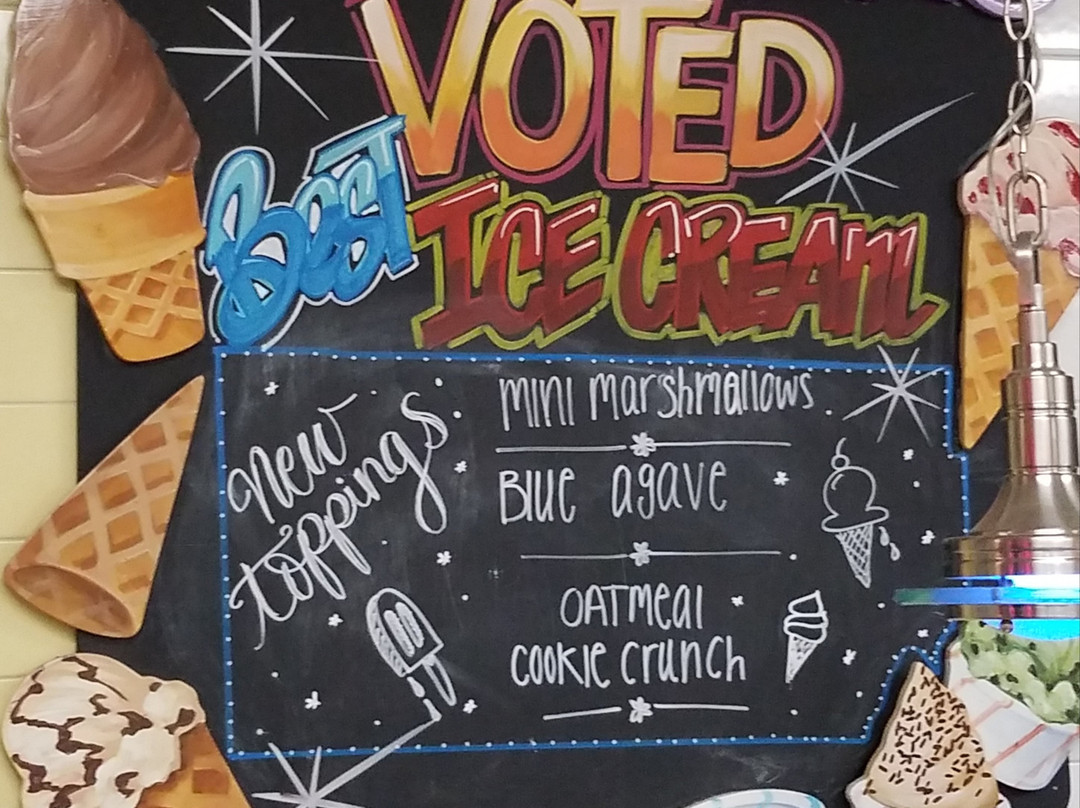 VOTED
BEST
ICE CREAM
New
toppings
mini marshmallows
Blue agave
OATmeal
cookie crunch